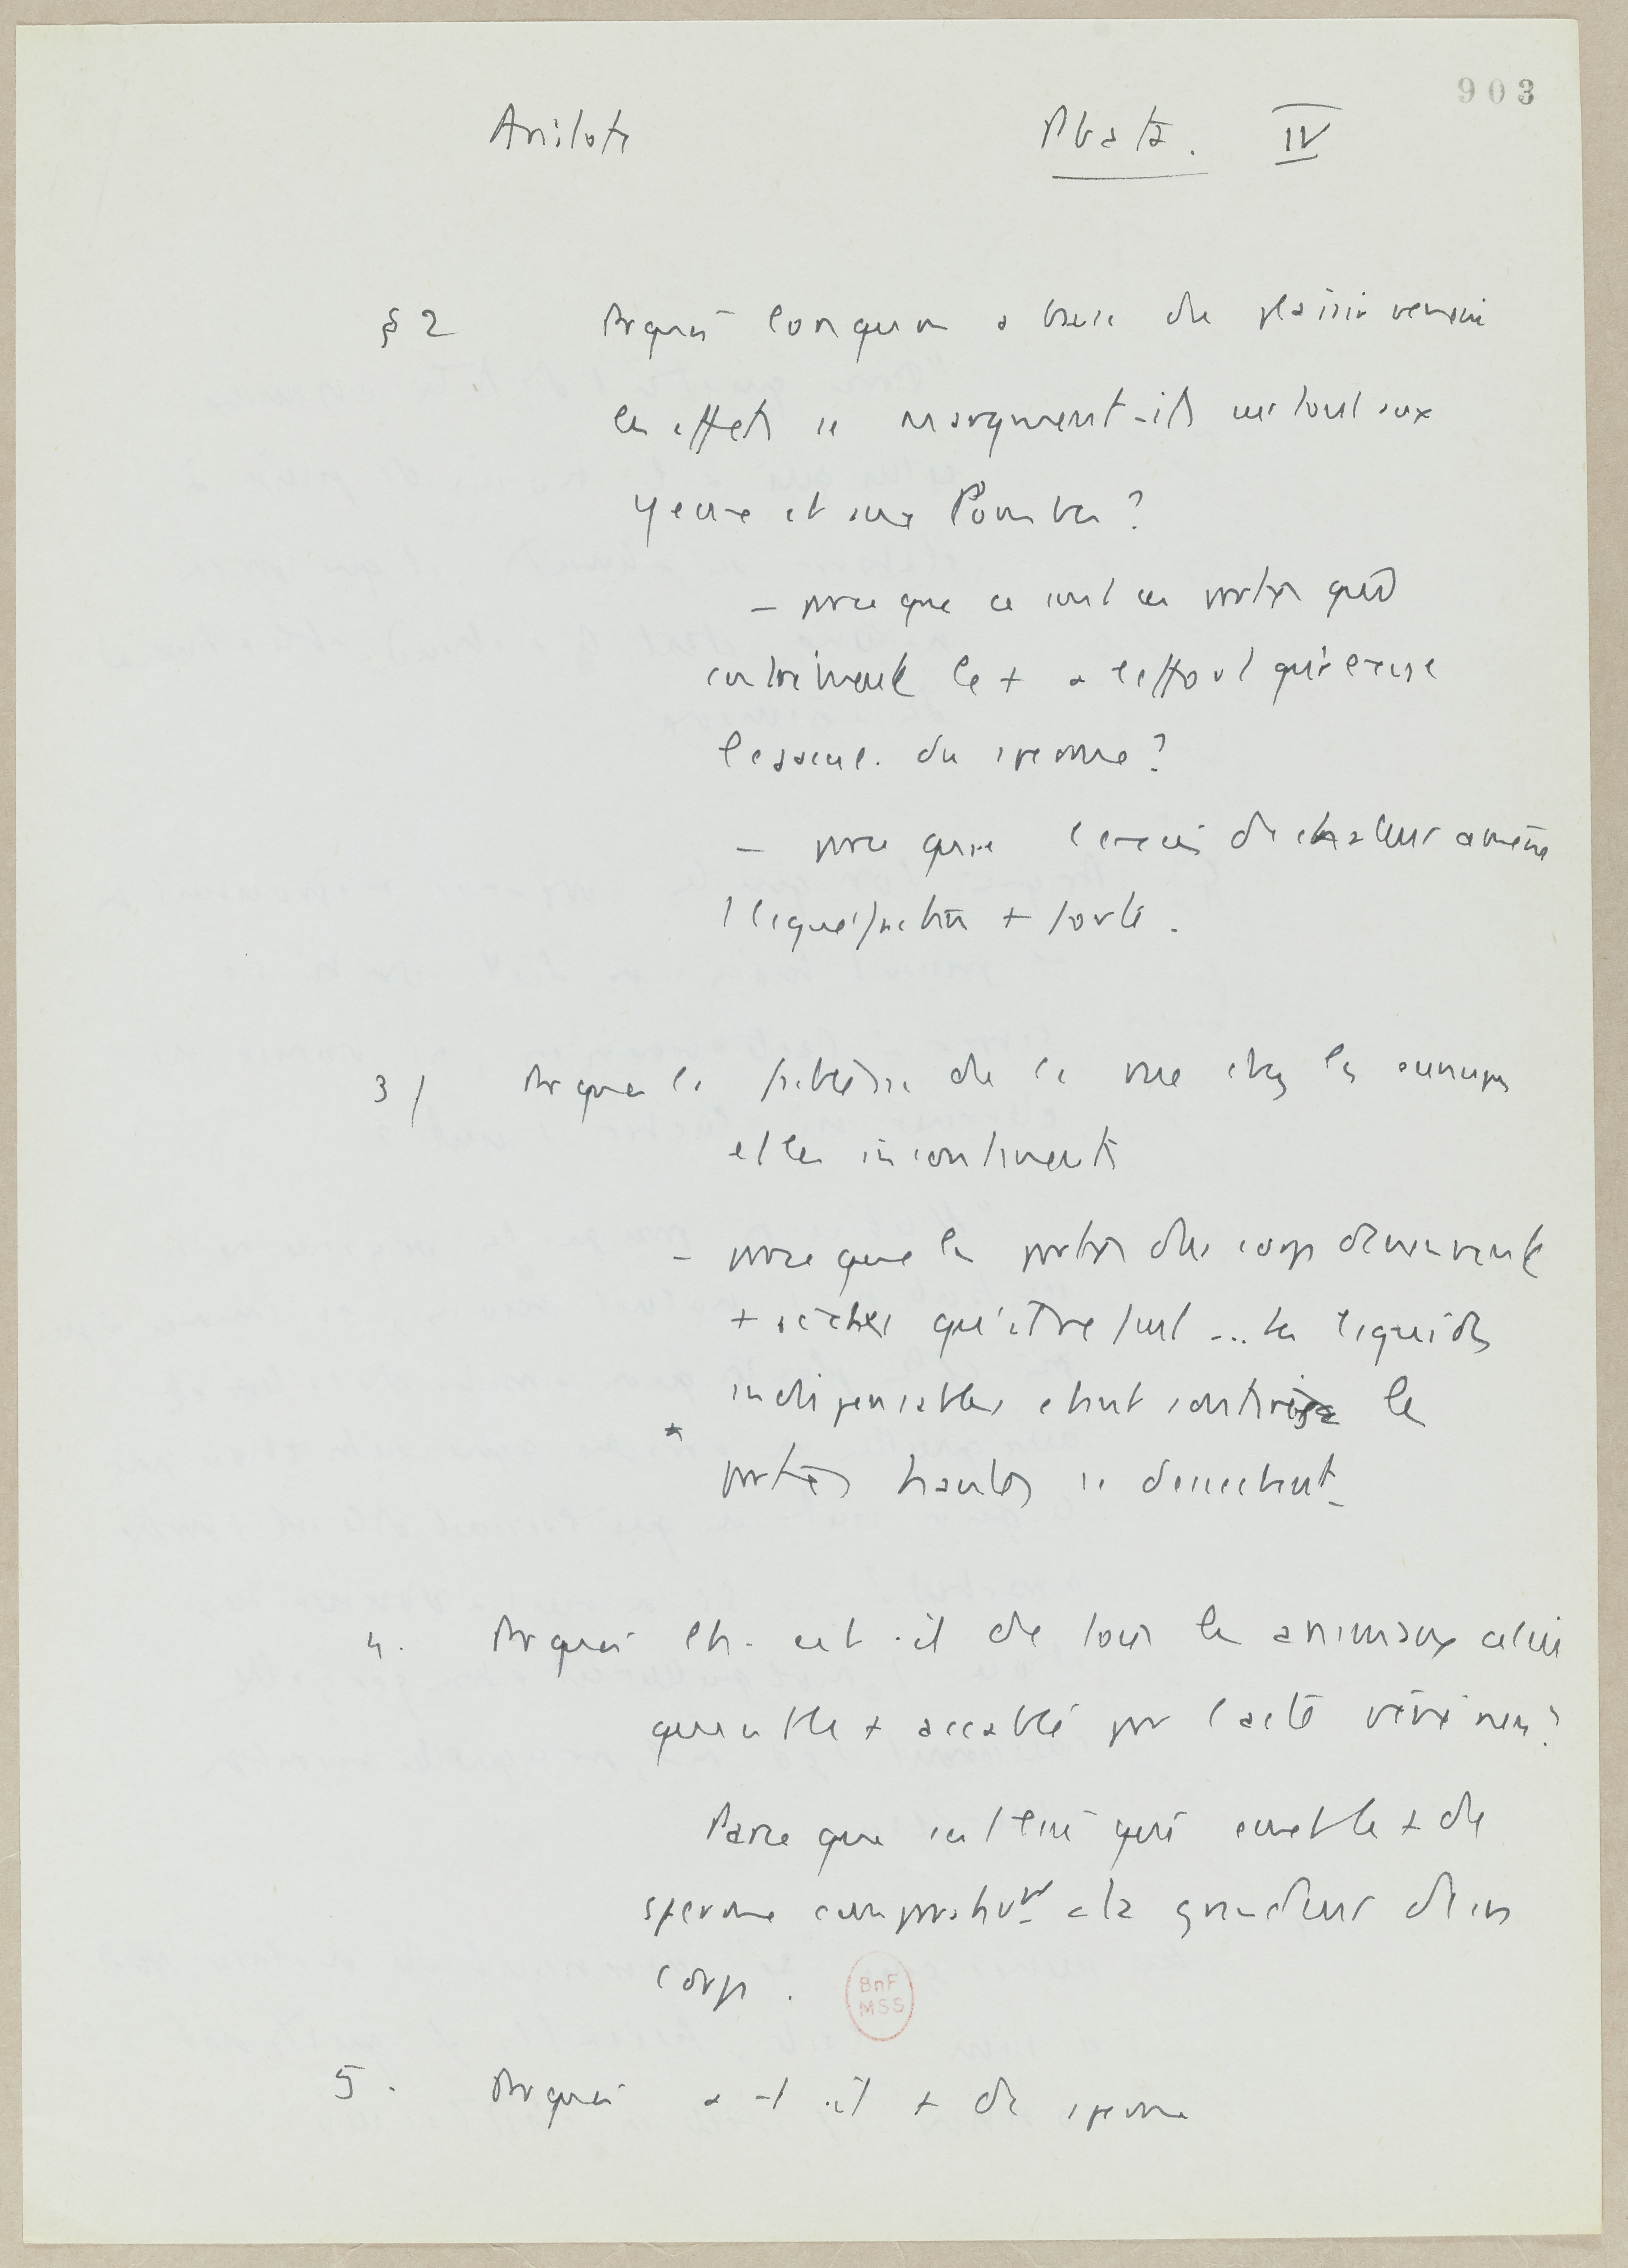 903
Aristote Pbata. IV
§ 2 Pourquoi lorsqu'on abuse du plaisir vénérien
les effets se marquent-ils surtout aux
yeux et aux lombes ?
– parce que ce sont ces parties qui
contribuent le + a l'effort qu'exige
du sperme ?
– parce que l'excès de chaleur amène
liquéfaction + forte.
3/ Pourquoi la faiblesse de la vue chez les eunuques
et les incontinents
– parce que les parties du corps deviennent
+ sèches qu'il ne faut ... les liquides
indispensables étant soutirés les
* parties hautes se dessèchent.
4. Pourquoi l'h. est-il de tous les animaux celui
qui est le + accablé par l'acte vénérien ?
Parce que c'est lui qui émet le + de
sperme comparativt à la grandeur de son
corps.
BnF
MSS
5. Pourquoi a-t-il + de sperme